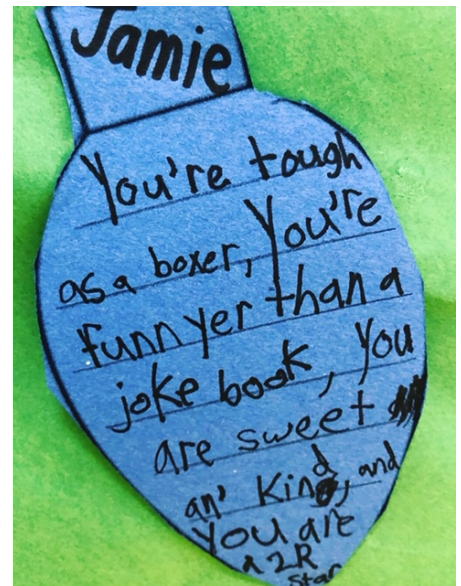 Jamie
You're tough
as a boxer, You're
funnyer than a
joke book, You
are sweet
an' kind, and
you are
a 2R
star